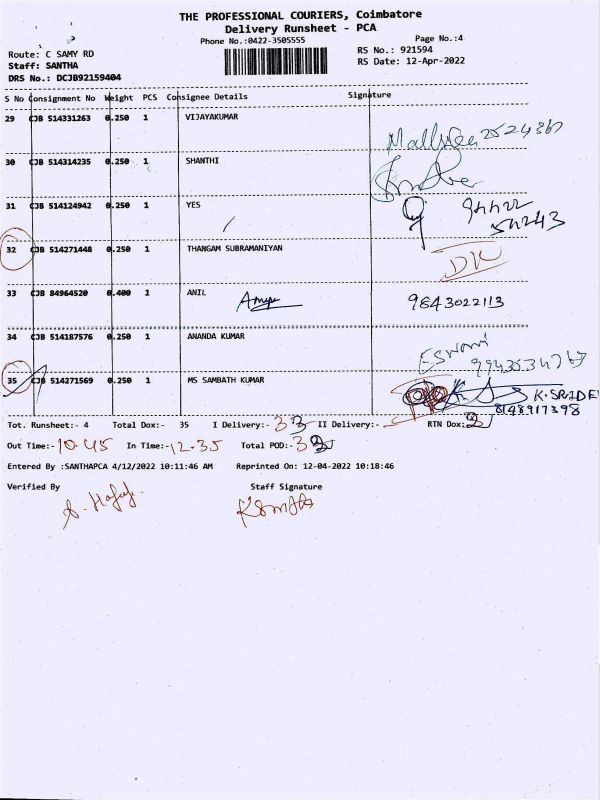 THE PROFESSIONAL COURIERS, Coimbatore
Delivery Runsheet - PCA
Phone No.:0422-3505555 Page No.:4
Route: C SAMY RD RS No.: 921594
Staff: SANTHA RS Date: 12-Apr-2022
DRS No.: DCJB92159404
S No Consignment No Weight PCS Consignee Details Signature
29 CJB 514331263 0.250 1 VIJAYAKUMAR
30 CJB 514314235 0.250 1 SHANTHI
31 CJB 514124942 0.250 1 YES
32 CJB 514271448 0.250 1 THANGAM SUBRAMANIYAN
DL
33 CJB 84964520 0.400 1 ANIL 9843022113
34 CJB 514187576 0.250 1 ANANDA KUMAR
ESWARI
35 CJB 514271569 0.250 1 MS SAMBATH KUMAR
K. SRIDE
8148917398
Tot. Runsheet:- 4 Total Dox:- 35 I Delivery:- 33 II Delivery:- RTN Dox:-
Out Time:- 10.45 In Time:- 12.35 Total POD:- 3
Entered By :SANTHAPCA 4/12/2022 10:11:46 AM Reprinted On: 12-04-2022 10:18:46
Verified By Staff Signature